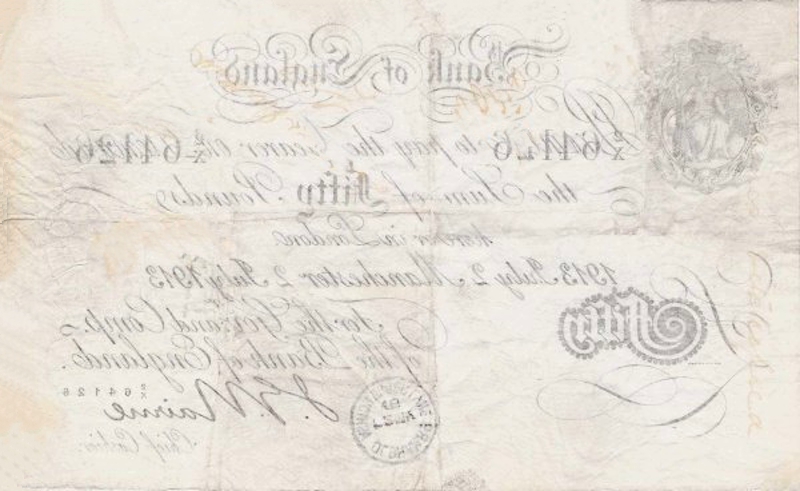 Bank of England
to pay the Bearer on Demand
the Sum of Fifty Pounds
here or in London
1913 July 2 Manchester 2 July 1913
For the Gov.r and Comp.a
of the Bank of England.
Fifty
64126
J. G. Nairne
Chief Cashier.